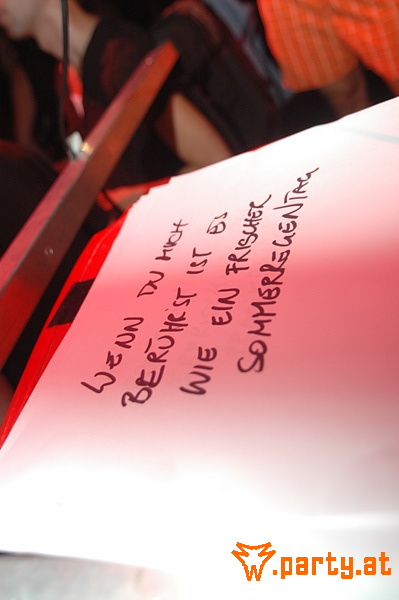 WENN DU MICH
BERÜHRST IST ES
WIE EIN FRISCHER
SOMMERREGENTAG
w.party.at